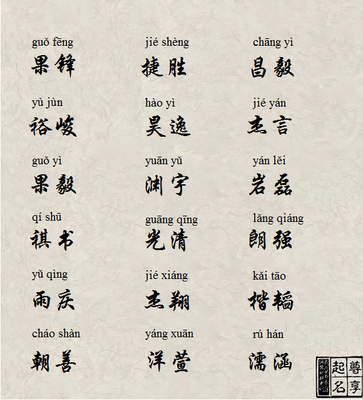 guǒ fēng jié shèng chāng yì
果锋 捷胜 昌毅
yù jùn hào yì jié yán
裕峻 昊逸 杰言
guǒ yì yuān yǔ yán lěi
果毅 渊宇 岩磊
qí shū guāng qīng lǎng qiáng
祺书 光清 朗强
yǔ qìng jié xiáng kǎi tāo
雨庆 杰翔 楷韬
cháo shàn yáng xuān rú hán
朝善 洋萱 濡涵
尊享
起名